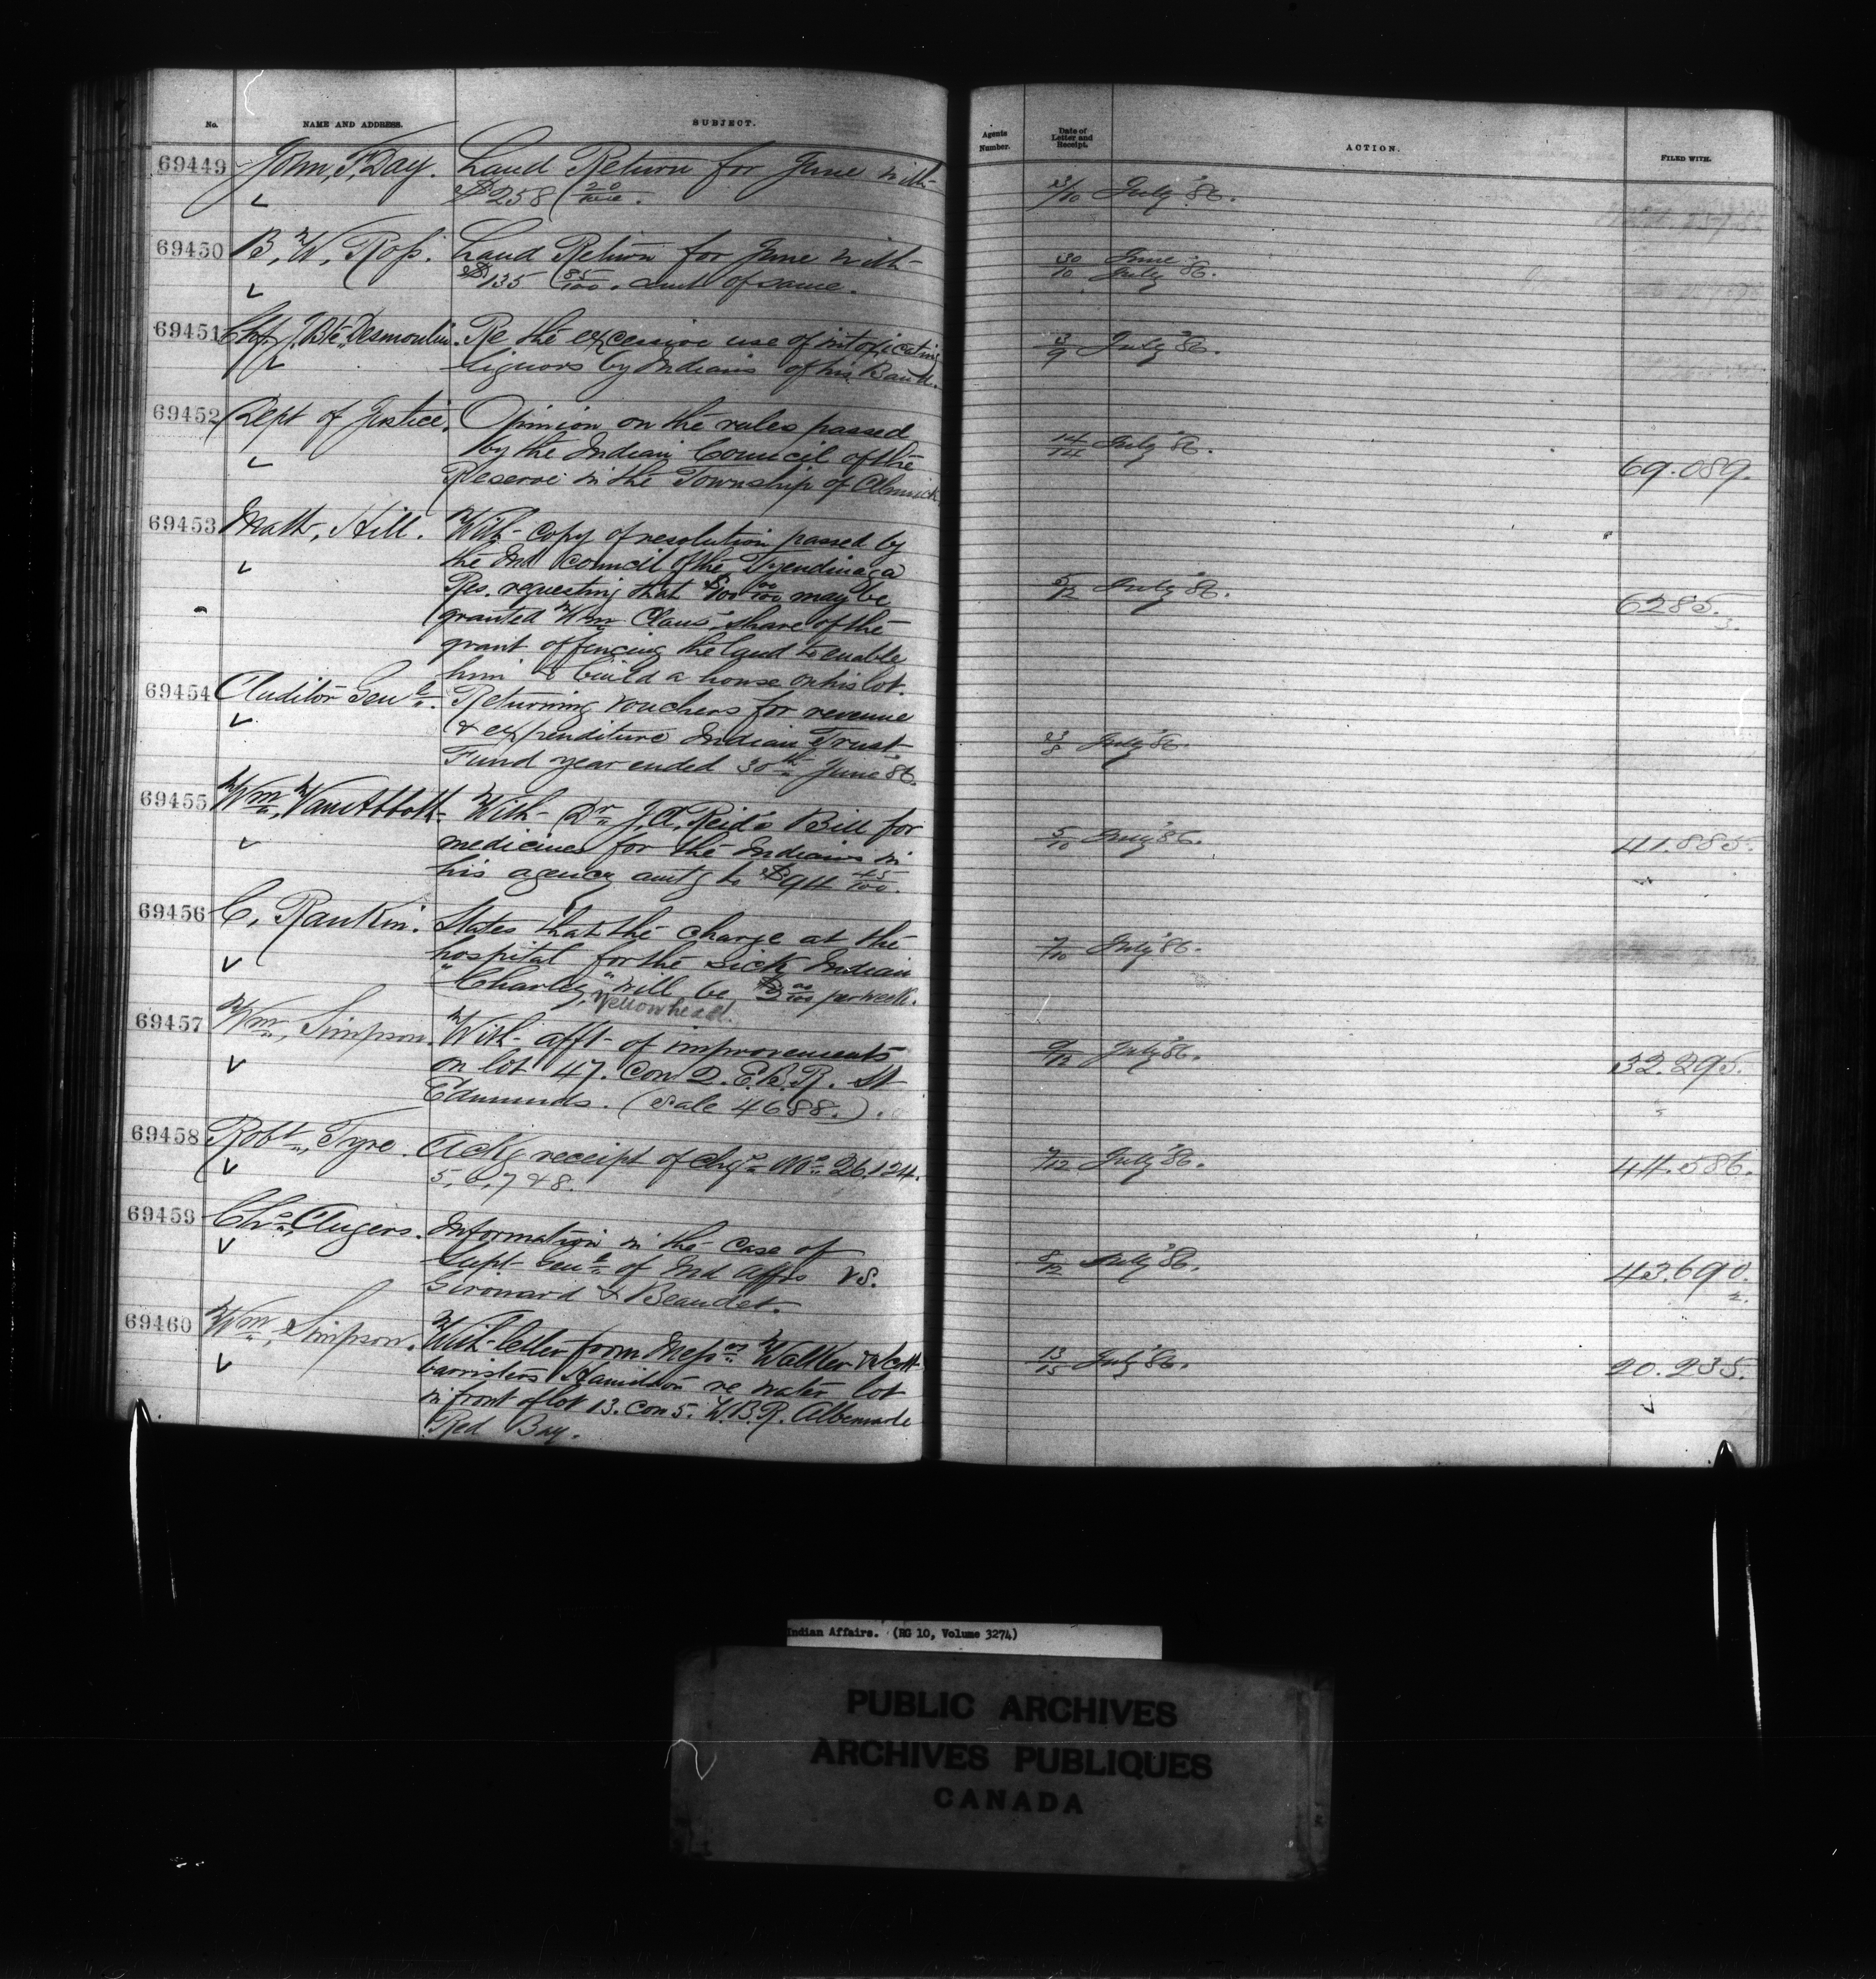 No. NAME AND ADDRESS. SUBJECT.
Agents Number. Date of Letter and Receipt. ACTION. FILED WITH.
69449 John, F, Day. Land Return for June with
$258 20/100. 3/10 July '86.
69450 B, W, Ross. Land Return for June with
$135 85/100. amt of same. 30/10 June July '86.
69451 Chf. J. Bte. Desmoulin. Re the excessive use of intoxicating
liquors by Indians of his Band. 3/9 July '86.
69452 Dept of Justice. Opinion on the rules passed
by the Indian Council of the 14/14 July '86.
Reserve in the Township of Alnwick 69.089.
69453 Matt, Hill. With copy of resolution passed by
the Ind Council of the Tyendinaga
Res. requesting that $100 00/100 may be 5/12 July '86. 6285.
granted Wm Claus' share of the 3.
grant of fencing the land to enable
him to build a house on his lot.
69454 Auditor Genl. Returning vouchers for revenue
& expenditure Indian Trust 23/8 July '86.
Fund year ended 30th June 86.
69455 Wm, Van Abbott. With Dr J, A, Reid's Bill for
medicines for the Indians in 5/10 July '86. 41.885.
his agency amtg to $94 45/100.
69456 C, Rankin. States that the charge at the
hospital for the sick Indian 7/10 July '86.
"Charley" will be $3 00/100 per week.
Yellowhead.
69457 Wm, Simpson. With afft of improvements
on lot 47. Con 2. E.B.R. St 9/12 July '86. 32.295.
Edmunds. (Sale 4688.).
69458 Robt, Tyre. Ackg receipt of chqs Nos 26,124.
5, 6, 7 & 8. 7/12 July '86. 44.586.
69459 Chs, Augers. Information in the case of
Supt Genl of Ind Affrs vs. 8/12 July '86. 43.690.
Girouard & Beaudet. 2.
69460 Wm, Simpson. With letter from Messrs Walker & Scott
barristers Hamilton re water lot 13/15 July '86. 20.235.
in front of lot 13. Con 5. W.B.R. Albemarle
Red Bay.
Indian Affairs. (RG 10, Volume 3274)
PUBLIC ARCHIVES
ARCHIVES PUBLIQUES
CANADA